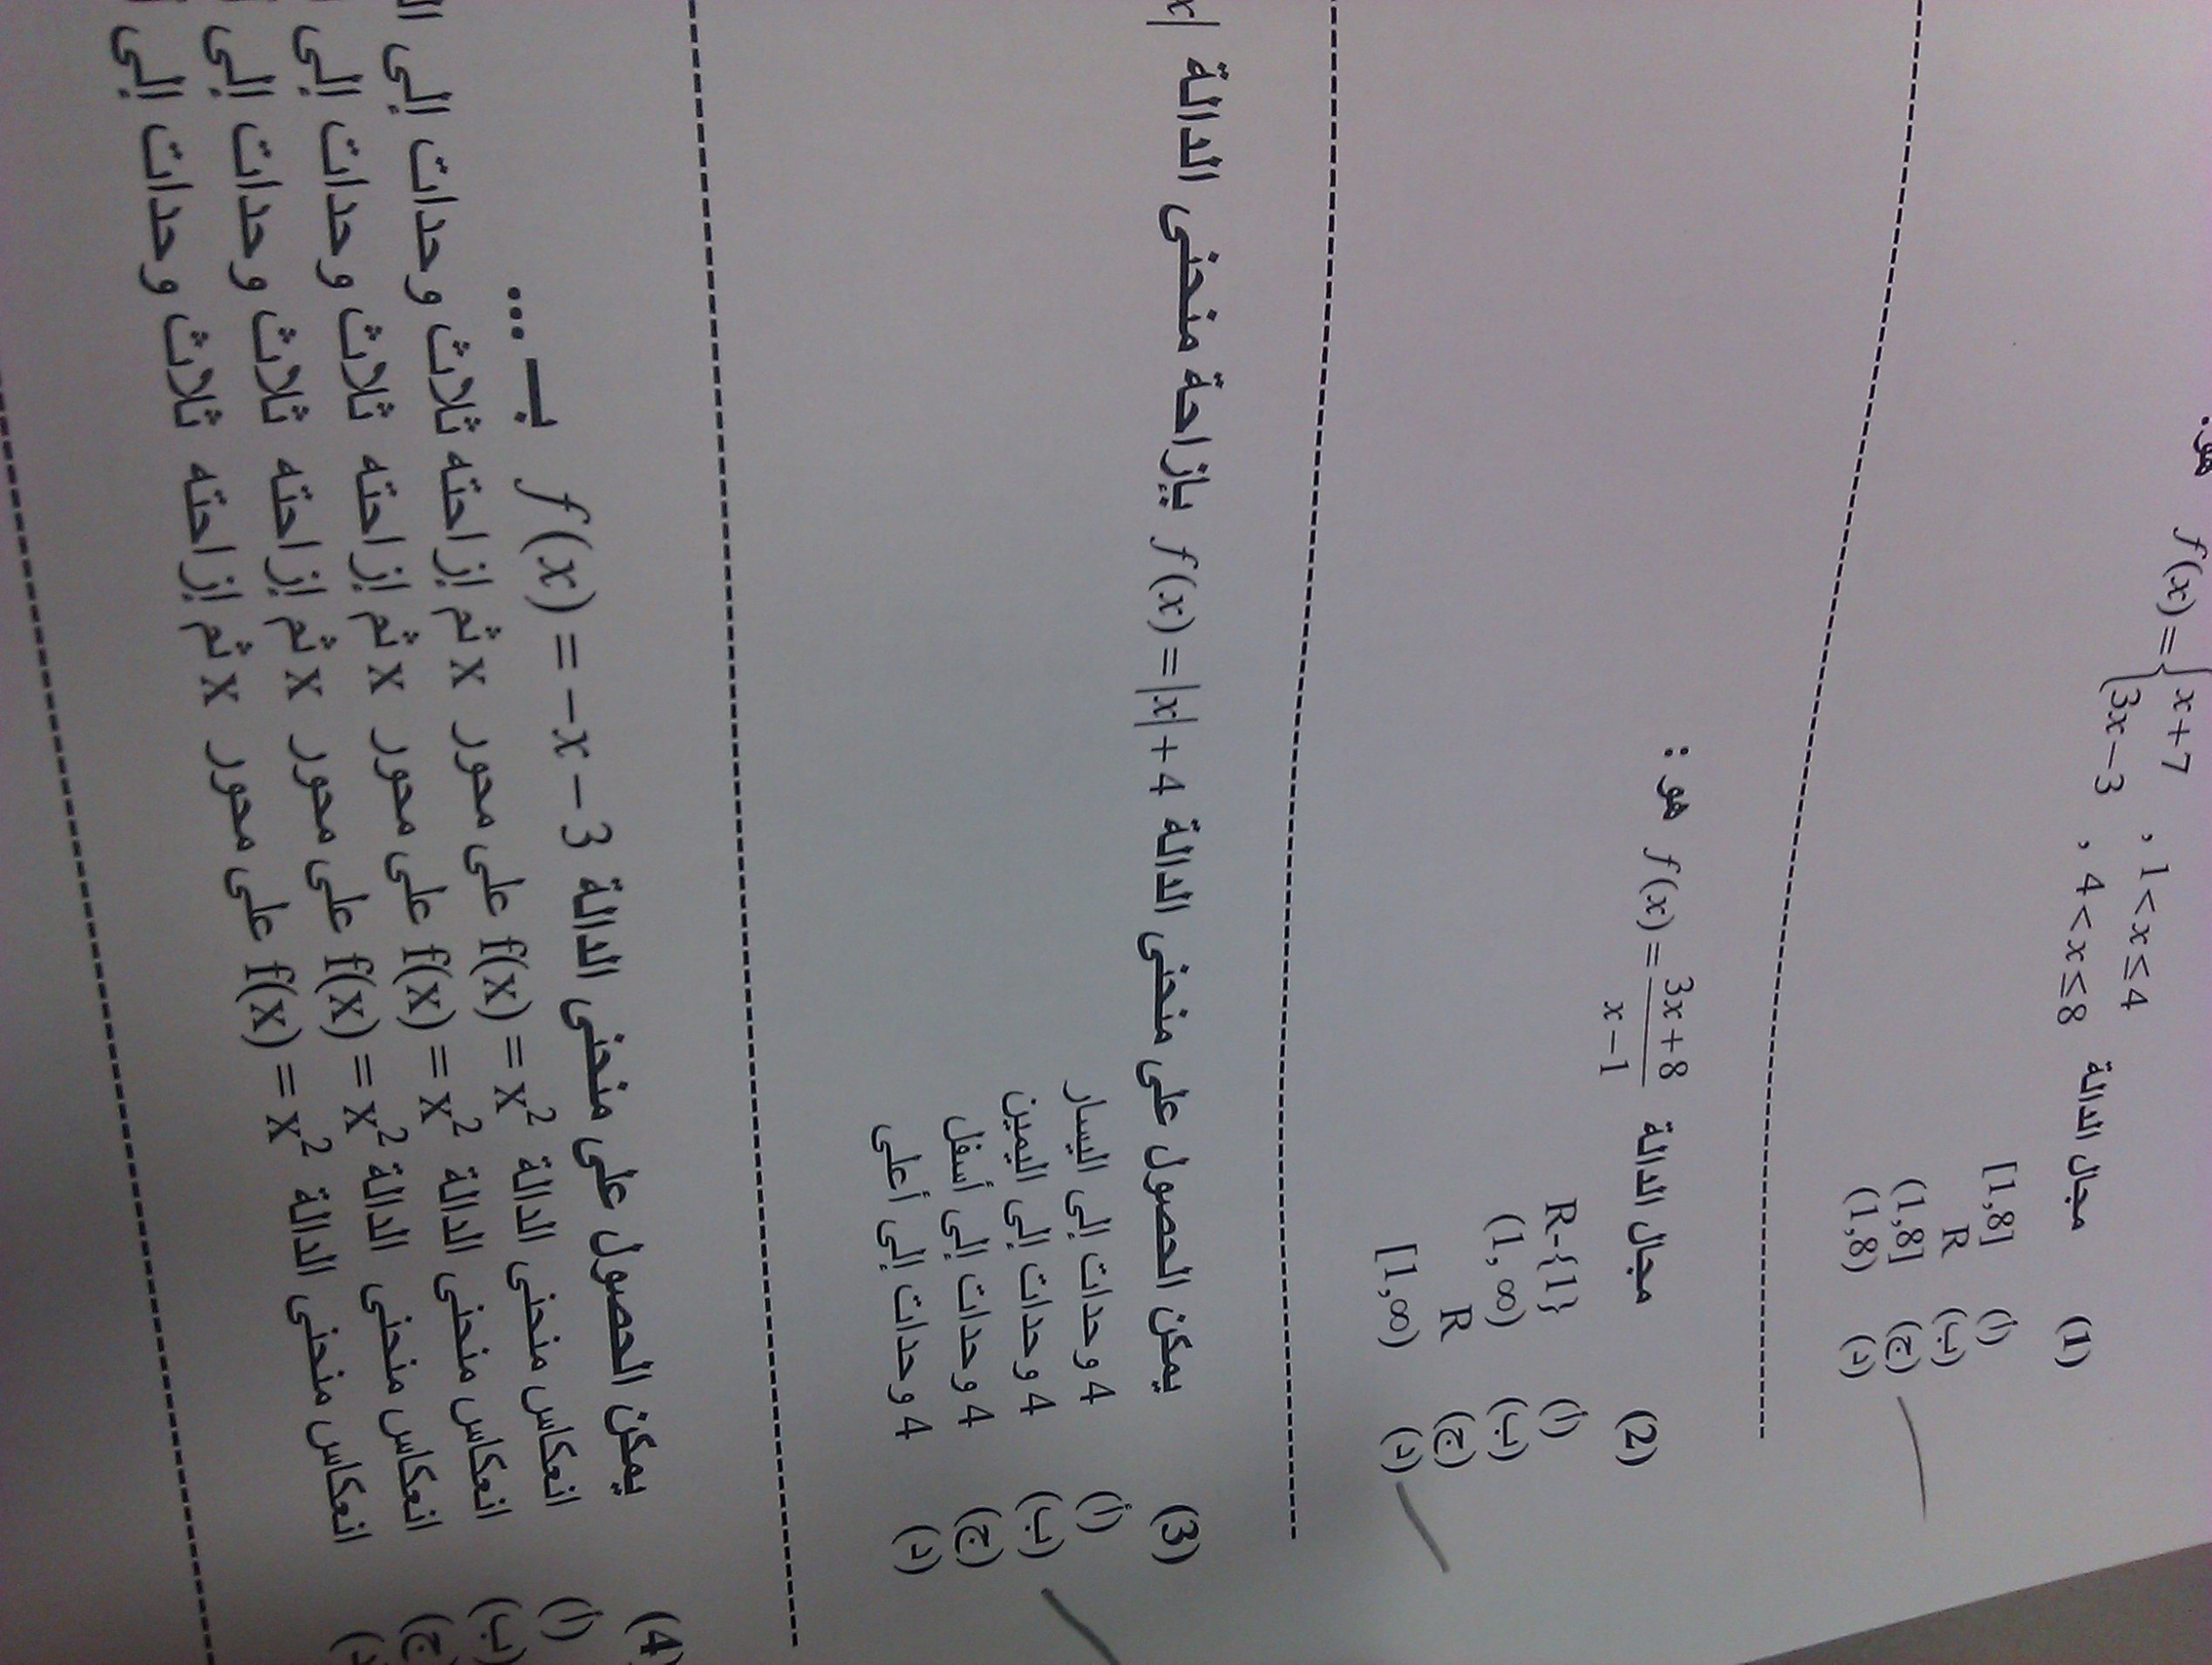 (1) مجال الدالة f(x) = { x+7 , 1 < x ≤ 4 هو:
3x−3 , 4 < x ≤ 8
(أ) [1,8]
(ب) R
(ج) (1,8]
(د) (1,8)
(2) مجال الدالة f(x) = (3x+8)/(x−1) هو :
(أ) R-{1}
(ب) (1, ∞)
(ج) R
(د) [1,∞)
(3) يمكن الحصول على منحنى الدالة f(x) = |x| + 4 بإزاحة منحنى الدالة x|
(أ) 4 وحدات إلى اليسار
(ب) 4 وحدات إلى اليمين
(ج) 4 وحدات إلى أسفل
(د) 4 وحدات إلى أعلى
(4) يمكن الحصول على منحنى الدالة f(x) = −x − 3 بـ ...
(أ) انعكاس منحنى الدالة f(x) = x² على محور x ثم إزاحته ثلاث وحدات إلى
(ب) انعكاس منحنى الدالة f(x) = x² على محور x ثم إزاحته ثلاث وحدات إلى
(ج) انعكاس منحنى الدالة f(x) = x² على محور x ثم إزاحته ثلاث وحدات إلى
(د) انعكاس منحنى الدالة f(x) = x² على محور x ثم إزاحته ثلاث وحدات إلى